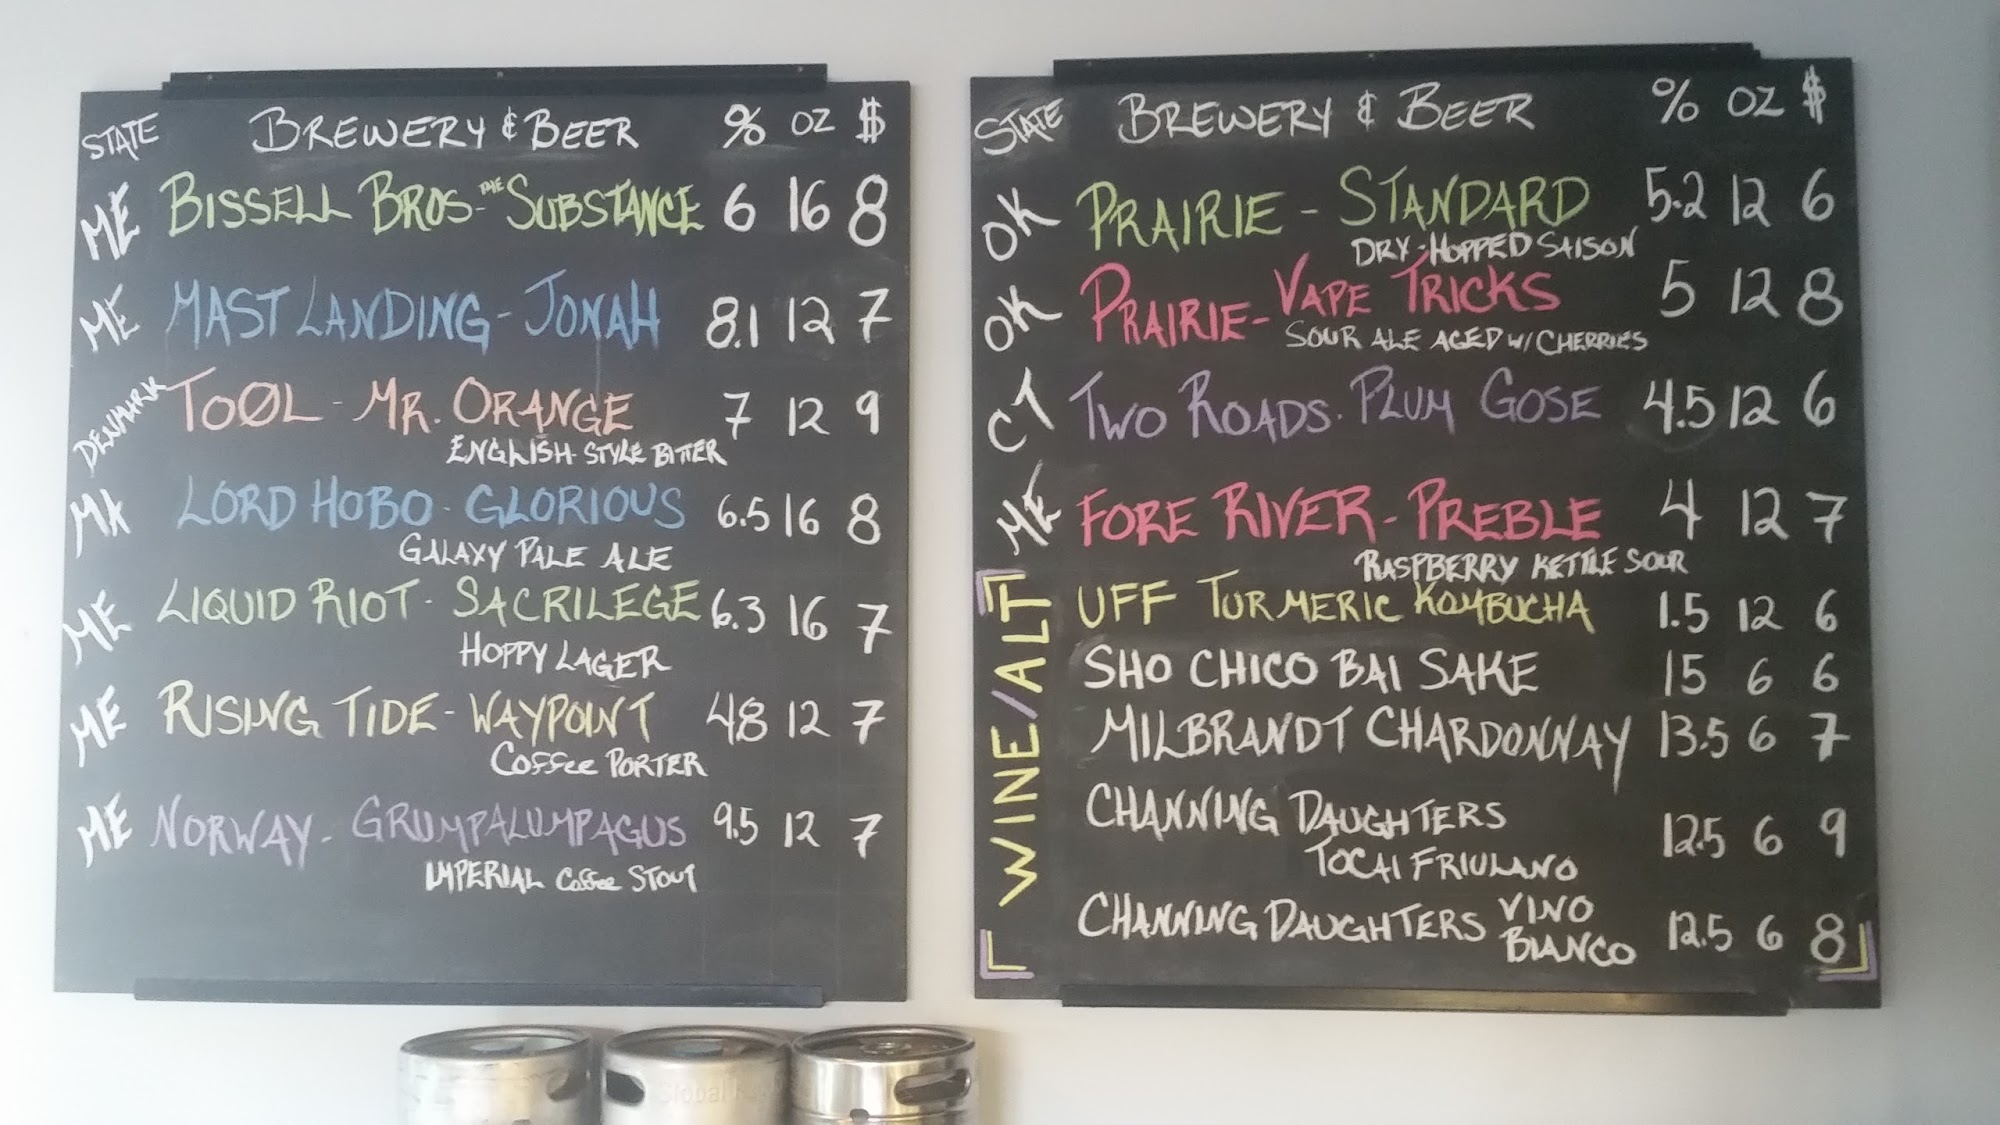 STATE BREWERY & BEER % OZ $
ME BISSELL BROS - THE SUBSTANCE 6 16 8
ME MAST LANDING - JONAH 8.1 12 7
DENMARK TOØL - MR. ORANGE 7 12 9
ENGLISH STYLE BITTER
MA LORD HOBO - GLORIOUS 6.5 16 8
GALAXY PALE ALE
ME LIQUID RIOT - SACRILEGE 6.3 16 7
HOPPY LAGER
ME RISING TIDE - WAYPOINT 4.8 12 7
COFFEE PORTER
ME NORWAY - GRUMPALUMPAGUS 9.5 12 7
IMPERIAL COFFEE STOUT
STATE BREWERY & BEER % OZ $
OK PRAIRIE - STANDARD 5.2 12 6
DRY-HOPPED SAISON
OK PRAIRIE - VAPE TRICKS 5 12 8
SOUR ALE AGED W/ CHERRIES
CT TWO ROADS. PLUM GOSE 4.5 12 6
ME FORE RIVER - PREBLE 4 12 7
RASPBERRY KETTLE SOUR
WINE/ALT
UFF TURMERIC KOMBUCHA 1.5 12 6
SHO CHICO BAI SAKE 15 6 6
MILBRANDT CHARDONNAY 13.5 6 7
CHANNING DAUGHTERS 12.5 6 9
TOCAI FRIULANO
CHANNING DAUGHTERS VINO 12.5 6 8
BIANCO
Global